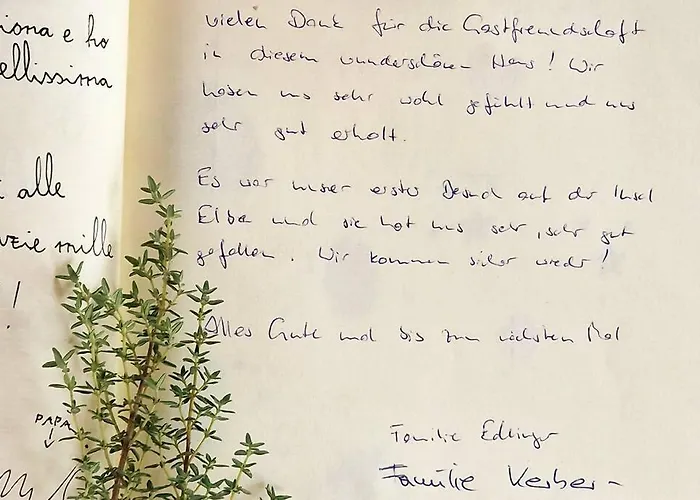 iona e ho
ellissima
alle
zie mille
!
PAPÀ
vielen Dank für die Gastfreundschaft
in diesem wunderschönen Haus! Wir
haben uns sehr wohl gefühlt und uns
sehr gut erholt.
Es war unser erster Besuch auf der Insel
Elba und sie hat uns sehr, sehr gut
gefallen. Wir kommen sicher wieder!
Alles Gute und bis zum nächsten Mal
Familie Edlinger
Familie Kerber-